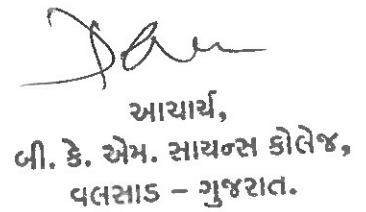 આચાર્ય,
બી. કે. એમ. સાયન્સ કોલેજ,
વલસાડ – ગુજરાત.